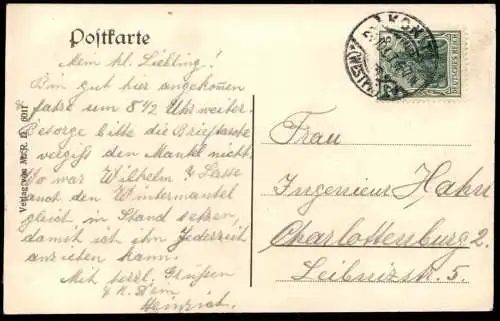 Postkarte
Mein kl. Liebling!
Bin gut hier angekommen
fahre um 8 1/2 Uhr weiter.
Besorge bitte die Brieftasche
vergiss den Mantel nicht.
So war Wilhelm &
auch den Wintermantel
gleich in Stand setzen,
damit ich ihn Jederzeit
anziehen kann.
Mit herzl. Grüssen
Heinrich.
Verlag von M. R. D. 6011
DEUTSCHES REICH
Frau
Ingenieur Hahn
Charlottenburg 2.
Leibnizstr. 5.